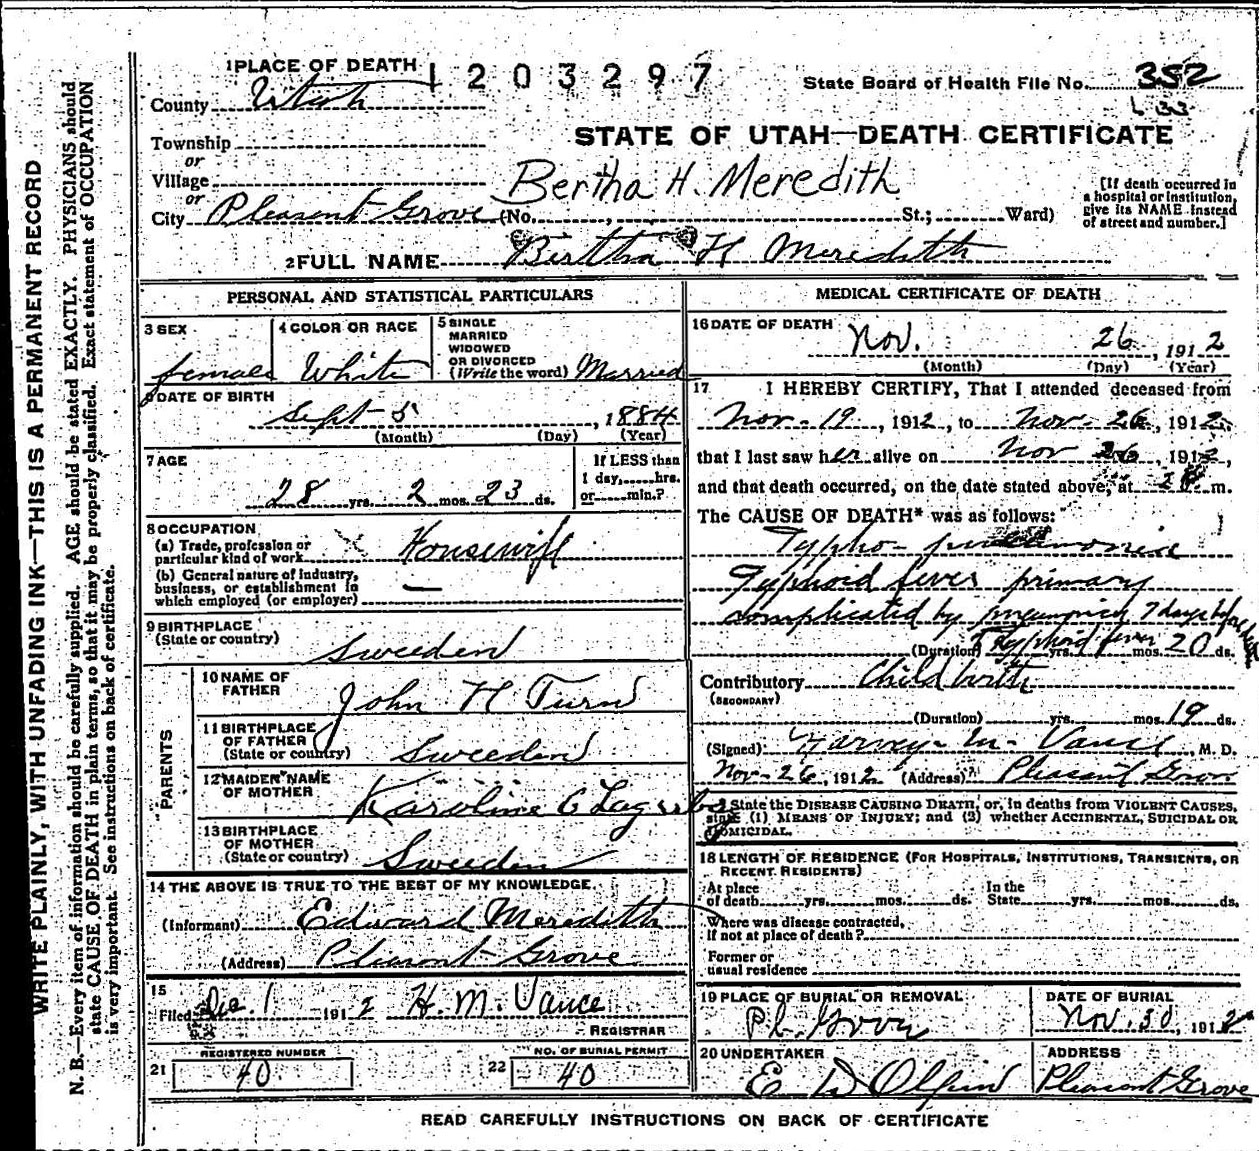 1 PLACE OF DEATH 1203297
State Board of Health File No. 352
County Utah
STATE OF UTAH—DEATH CERTIFICATE
Township
or
Village
or
Bertha H. Meredith
City Pleasant Grove (No. , St.; Ward)
[If death occurred in
a hospital or institution,
give its NAME instead
of street and number.]
2 FULL NAME Bertha H Meredith
PERSONAL AND STATISTICAL PARTICULARS
3 SEX
female
4 COLOR OR RACE
White
5 SINGLE
MARRIED
WIDOWED
OR DIVORCED
(Write the word) Married
6 DATE OF BIRTH
Sept 5, 1884
(Month) (Day) (Year)
7 AGE
28 yrs. 2 mos. 23 ds.
If LESS than
1 day, hrs.
or min.?
8 OCCUPATION
(a) Trade, profession or
particular kind of work Housewife
(b) General nature of industry,
business, or establishment in
which employed (or employer) —
9 BIRTHPLACE
(State or country) Sweeden
PARENTS
10 NAME OF
FATHER John H Turn
11 BIRTHPLACE
OF FATHER
(State or country) Sweeden
12 MAIDEN NAME
OF MOTHER Karoline C
13 BIRTHPLACE
OF MOTHER
(State or country) Sweeden
14 THE ABOVE IS TRUE TO THE BEST OF MY KNOWLEDGE.
(Informant) Edward Meredith
(Address) Pleasant Grove
15
Filed Dec 1 1912 H. M. Vance
REGISTRAR
REGISTERED NUMBER
21 40
NO. OF BURIAL PERMIT
22 40
MEDICAL CERTIFICATE OF DEATH
16 DATE OF DEATH Nov. 26, 1912
(Month) (Day) (Year)
17 I HEREBY CERTIFY, That I attended deceased from
Nov. 19, 1912, to Nov. 26, 1912,
that I last saw her alive on Nov 26, 1912,
and that death occurred, on the date stated above, at m.
The CAUSE OF DEATH* was as follows:
Typho-pneumonia
Typhoid fever primary
complicated by pneumonia 7 days before death
(Duration) Typhoid fever yrs. mos. 20 ds.
Contributory Child birth
(SECONDARY)
(Duration) yrs. mos. 19 ds.
(Signed) Harvey M. Vance, M. D.
Nov-26, 1912 (Address) Pleasant Grove
State the DISEASE CAUSING DEATH, or, in deaths from VIOLENT CAUSES,
state (1) MEANS OF INJURY; and (2) whether ACCIDENTAL, SUICIDAL OR
HOMICIDAL.
18 LENGTH OF RESIDENCE (FOR HOSPITALS, INSTITUTIONS, TRANSIENTS, OR
RECENT RESIDENTS)
At place
of death yrs. mos. ds.
In the
State yrs. mos. ds.
Where was disease contracted,
If not at place of death?
Former or
usual residence
19 PLACE OF BURIAL OR REMOVAL
Pl. Grove
DATE OF BURIAL
Nov. 30, 1912
20 UNDERTAKER
E D Olpin
ADDRESS
Pleasant Grove
READ CAREFULLY INSTRUCTIONS ON BACK OF CERTIFICATE
WRITE PLAINLY, WITH UNFADING INK—THIS IS A PERMANENT RECORD
N. B.—Every item of information should be carefully supplied. AGE should be stated EXACTLY. PHYSICIANS should
state CAUSE OF DEATH in plain terms, so that it may be properly classified. Exact statement of OCCUPATION
is very important. See instructions on back of certificate.